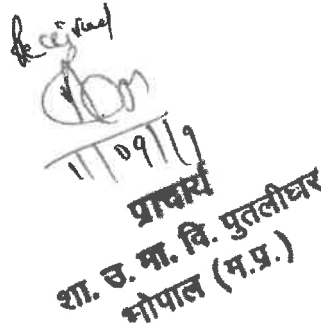 Received
11/09/19
प्राचार्य
शा. उ. मा. वि. पुतलीघर
भोपाल (म.प्र.)